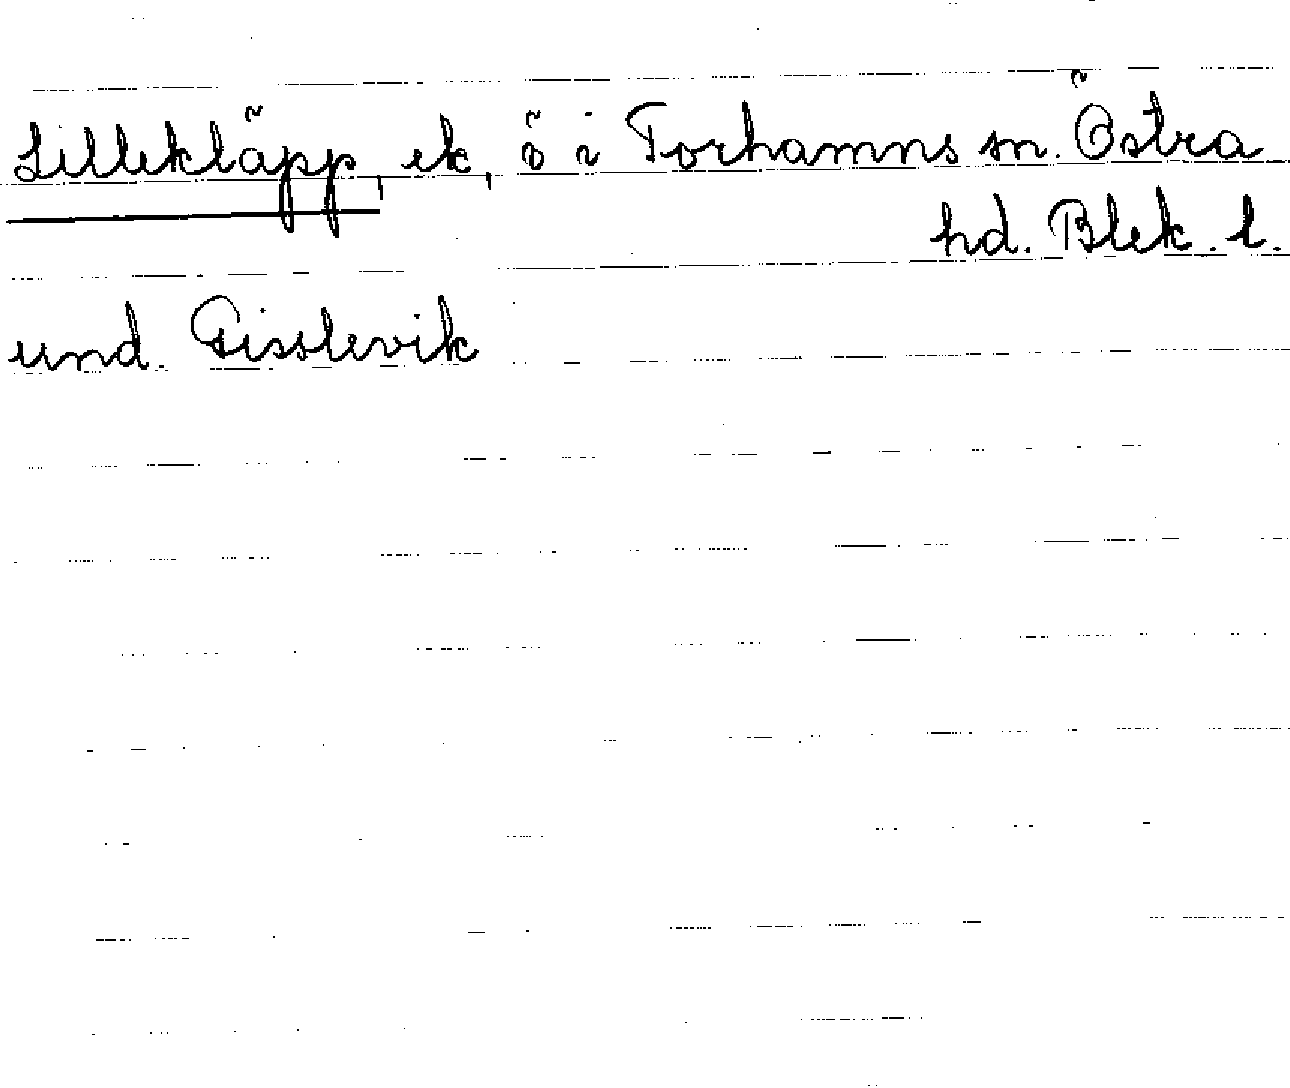 Lillekläpp, ek, ö i Torhamns sn. Östra
hd. Blek. l.
und. Gisslevik